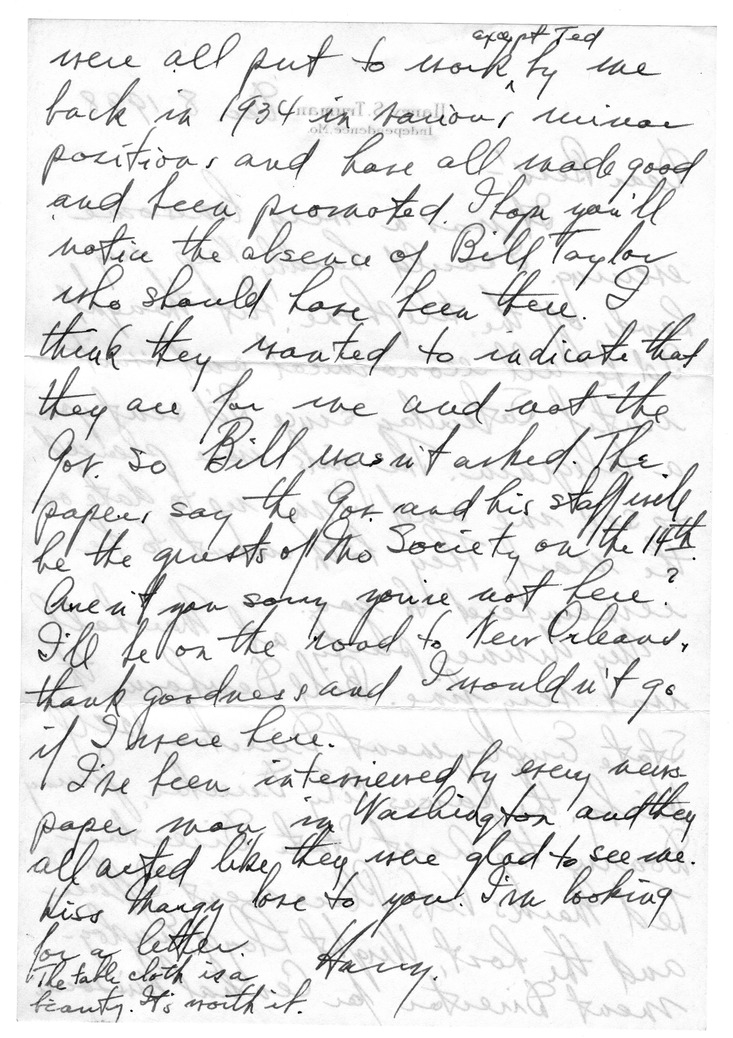 except Ted
were all put to work ^ by me
back in 1934 in various minor
positions and have all made good
and been promoted. I hope you'll
notice the absence of Bill Taylor
who should have been there. I
think they wanted to indicate that
they are for me and not the
Gov. so Bill wasn't asked. The
papers say the Gov. and his staff will
be the guests of Mo Society on the 14th.
Aren't you sorry you're not here?
I'll be on the road to New Orleans,
thank goodness and I wouldn't go
if I were here.
I've been interviewed by every news-
paper man in Washington and they
all acted like they were glad to see me.
Kiss Margy love to you. I'm looking
for a letter.
Harry.
The table cloth is a
beauty. It's worth it.
Harry S. Truman
Independence, Mo.